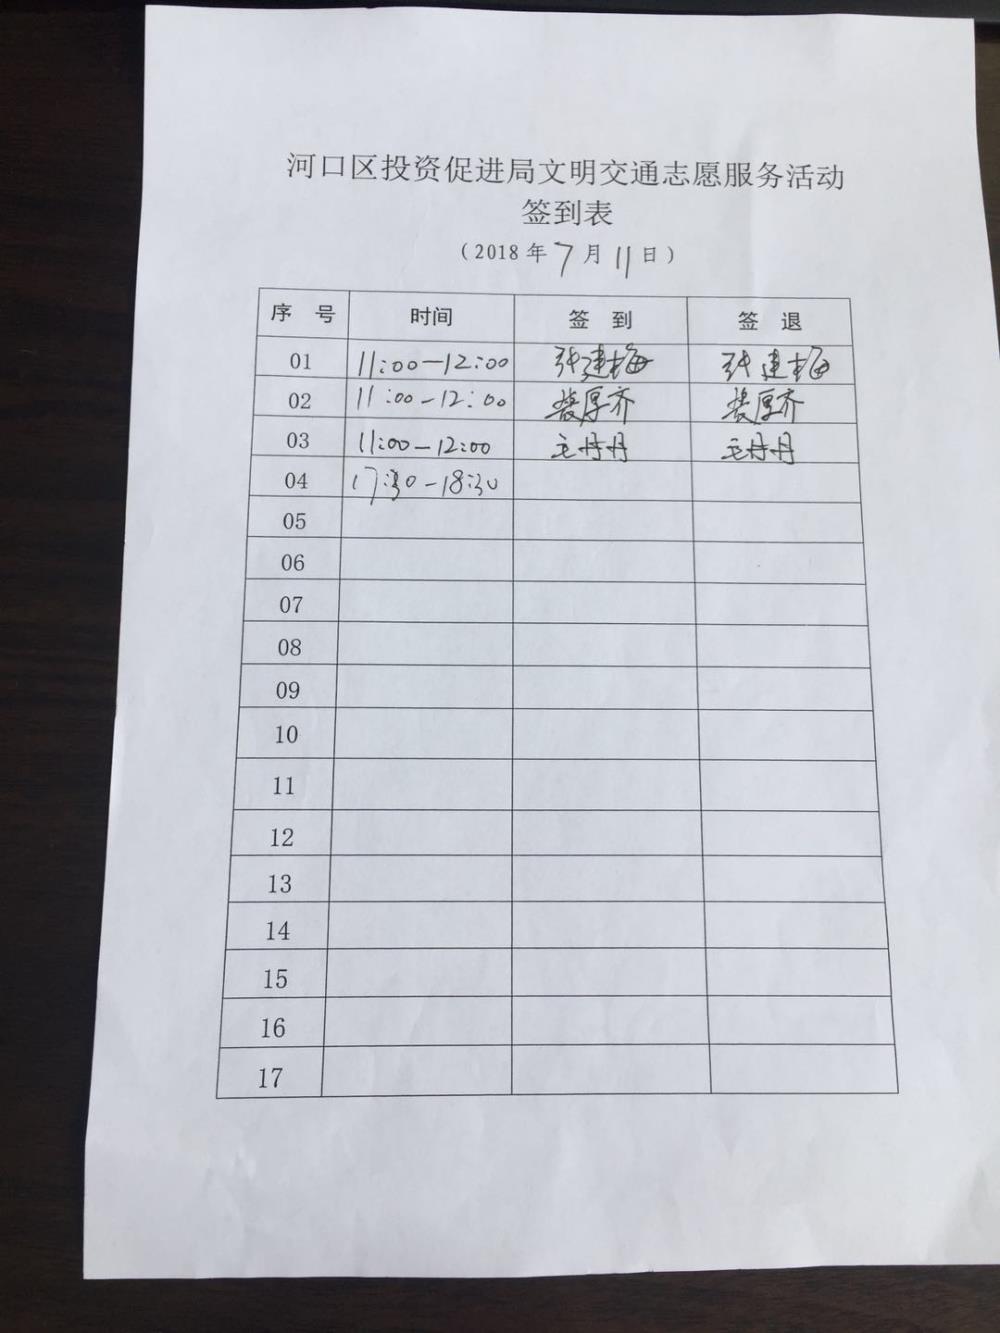 河口区投资促进局文明交通志愿服务活动
签到表
（2018年7月11日）
序 号 时间 签 到 签 退
01 11:00-12:00 张建梅 张建梅
02 11:00-12:00 裴厚齐 裴厚齐
03 11:00-12:00 毛丹丹 毛丹丹
04 17:30-18:30
05
06
07
08
09
10
11
12
13
14
15
16
17